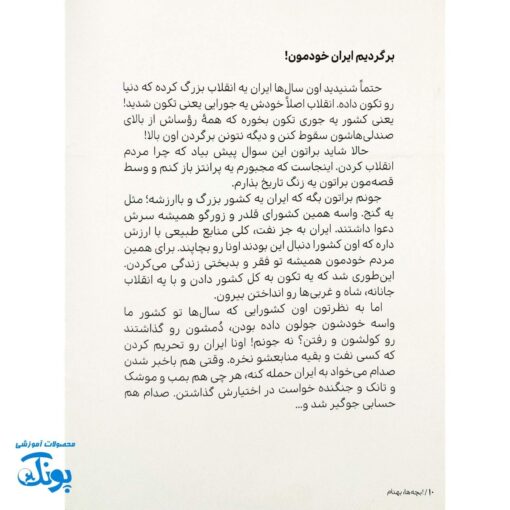 برگردیم ایران خودمون!
حتماً شنیدید اون سال‌ها ایران یه انقلاب بزرگ کرده که دنیا
رو تکون داده. انقلاب اصلاً خودش یه جورایی یعنی تکون شدید!
یعنی کشور یه جوری تکون بخوره که همۀ رؤساش از بالای
صندلی‌هاشون سقوط کنن و دیگه نتونن برگردن اون بالا!
حالا شاید براتون این سوال پیش بیاد که چرا مردم
انقلاب کردن. اینجاست که مجبورم یه پرانتز باز کنم و وسط
قصه‌مون براتون یه زنگ تاریخ بذارم.
جونم براتون بگه که ایران یه کشور بزرگ و باارزشه! مثل
یه گنج. واسه همین کشورای قلدر و زورگو همیشه سرش
دعوا داشتند. ایران به جز نفت، کلی منابع طبیعی با ارزش
داره که اون کشورا دنبال این بودند اونا رو بچاپند. برای همین
مردم خودمون همیشه تو فقر و بدبختی زندگی می‌کردن.
این‌طوری شد که یه تکون به کل کشور دادن و با یه انقلاب
جانانه، شاه و غربی‌ها رو انداختن بیرون.
اما به نظرتون اون کشورایی که سال‌ها تو کشور ما
واسه خودشون جولون داده بودن، دُمشون رو گذاشتند
رو کولشون و رفتن؟ نه جونم! اونا ایران رو تحریم کردن
که کسی نفت و بقیه منابعشو نخره. وقتی هم باخبر شدن
صدام می‌خواد به ایران حمله کنه، هر چی هم بمب و موشک
و تانک و جنگنده خواست در اختیارش گذاشتن. صدام هم
حسابی جوگیر شد و...
۱۰ / ابچه‌ها، بهنام
محصولات آموزشی
پونک